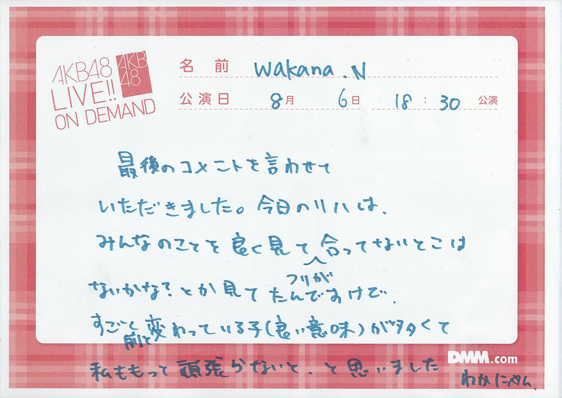 AKB48
LIVE!!
ON DEMAND
AKB
48
名前 Wakana.N
公演日 8月 6日 18:30 公演
最後のコメントを言わせて
いただきました。今日のリハは、
みんなのことを良く見て合ってないとこは
ないかな?とか見てたんですけど、
フリが
すごく変わっている子(良い意味)が多くて
前と
私ももっと頑張らないと、と思いました
DMM.com
わかにゃん